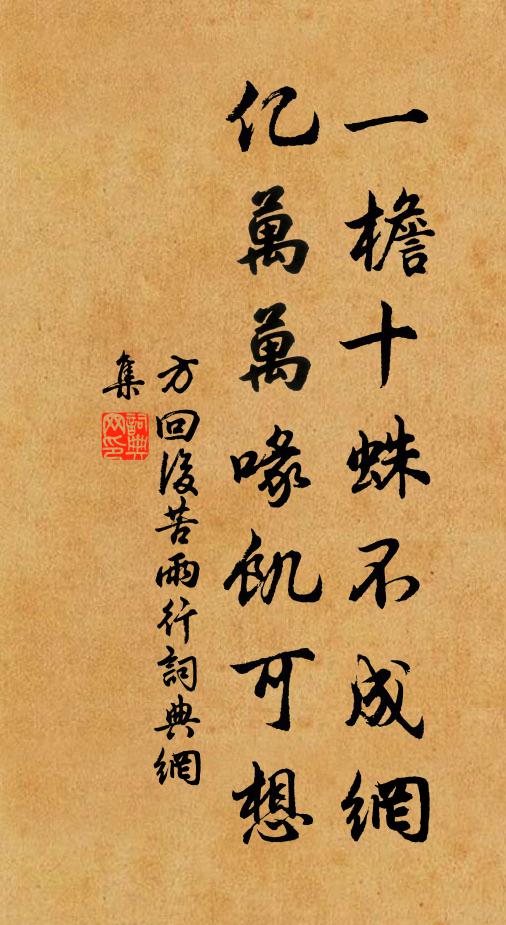 一檐十蛛不成網
亿萬萬喙飢可想
方回後苦雨行詞典網
集
詞典
网印